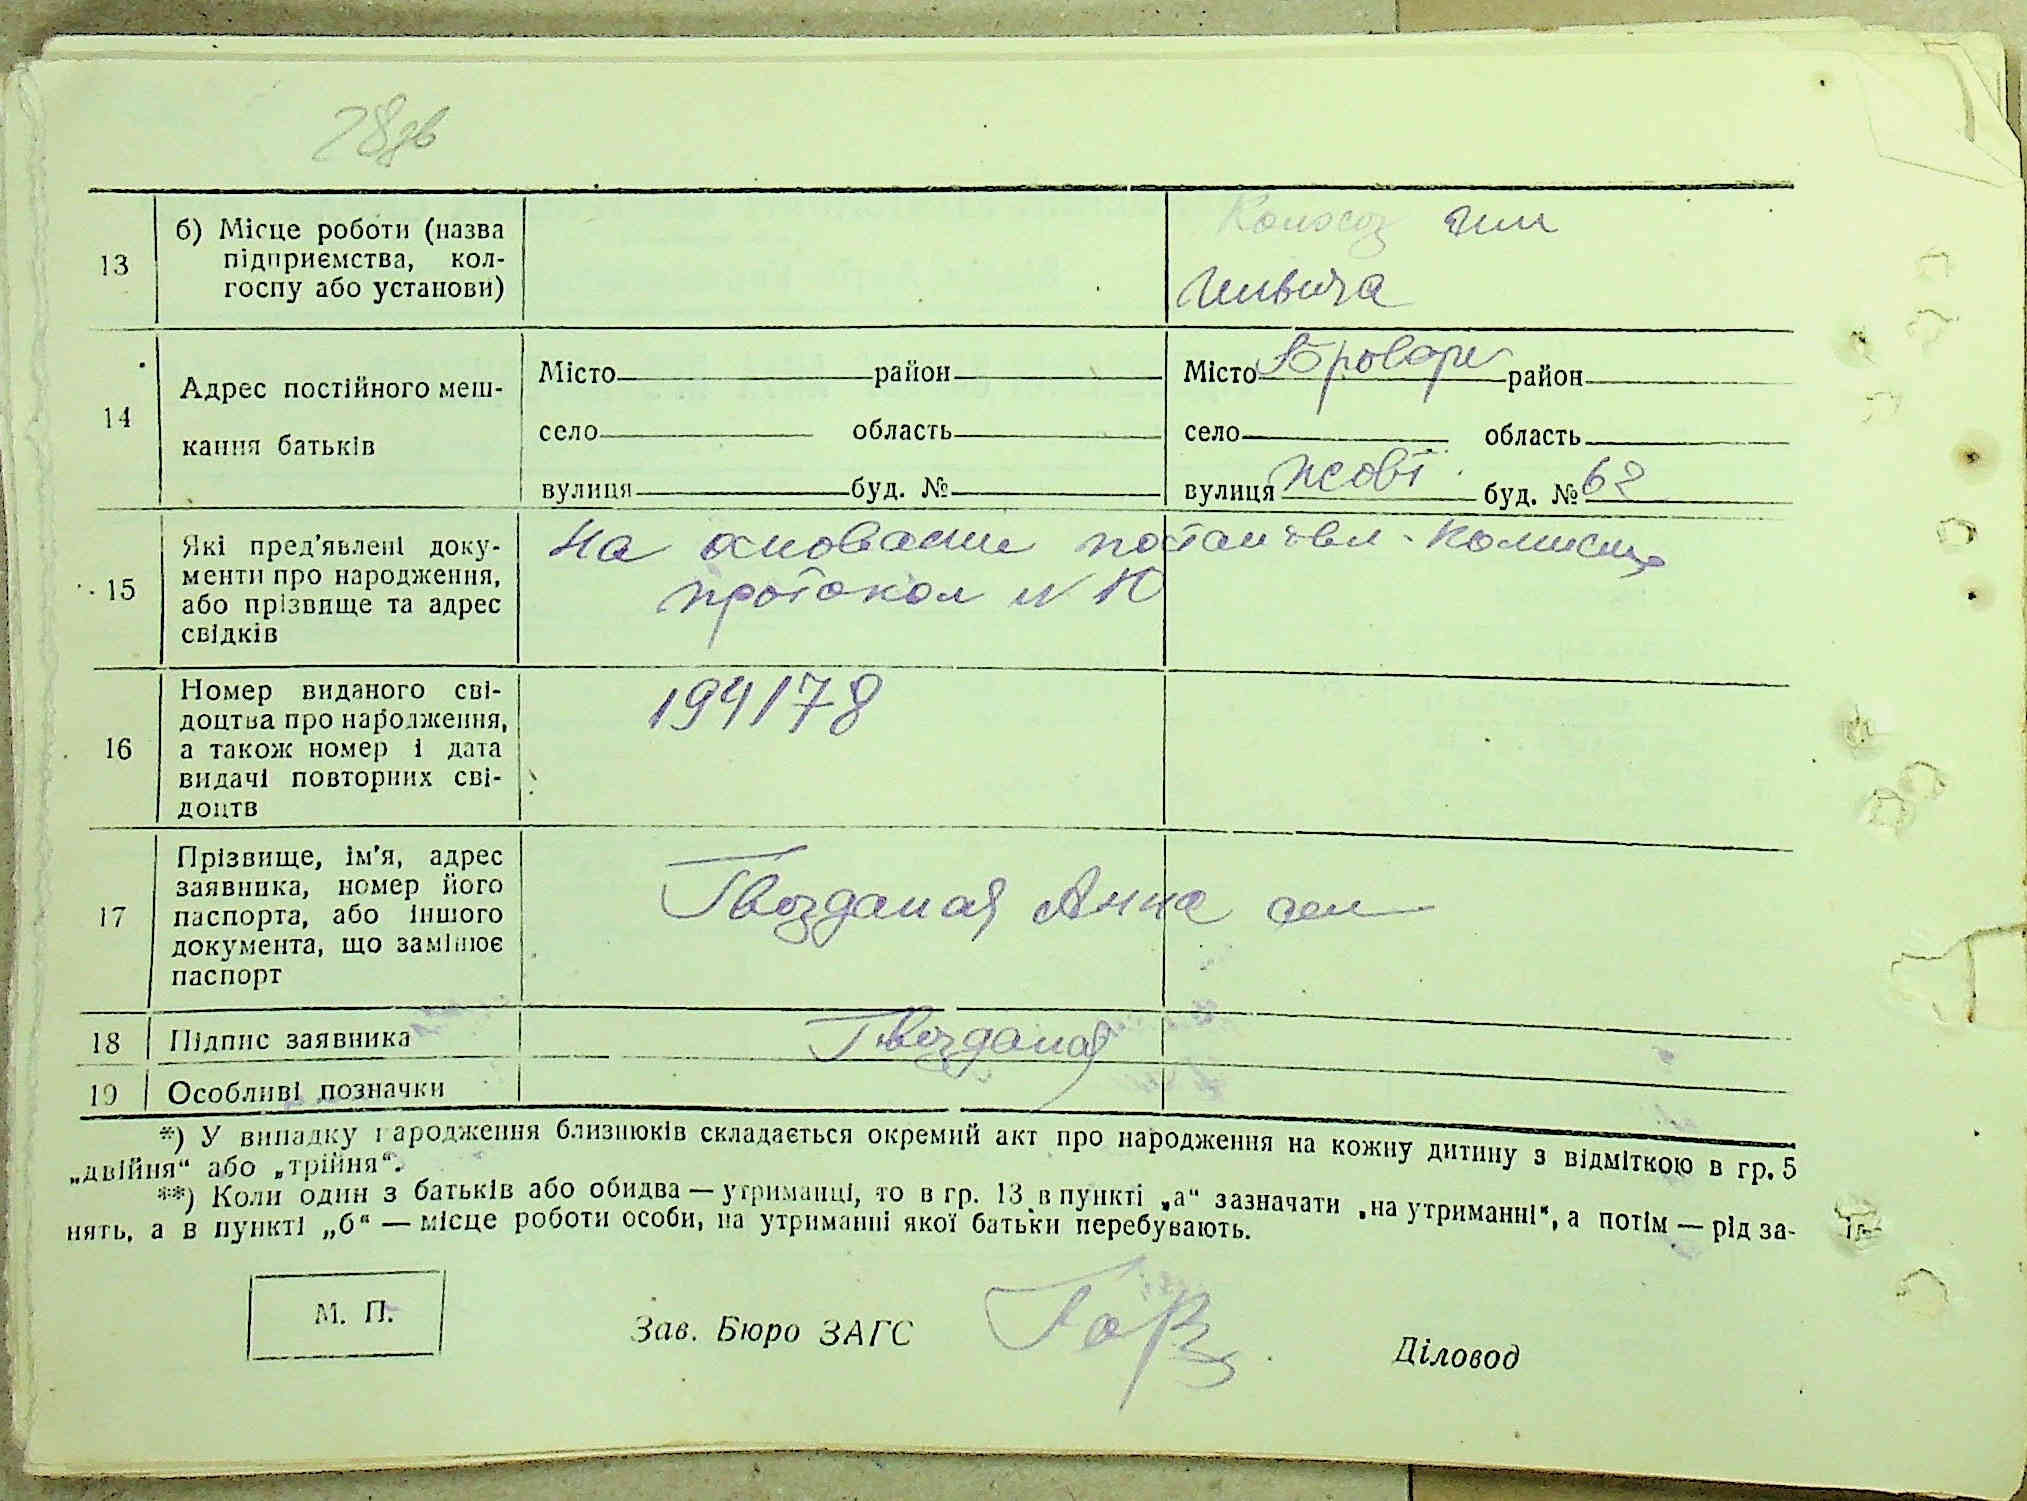 28зв
13
б) Місце роботи (назва
підприємства, кол-
госпу або установи)
Колхоз им
Ильича
14
Адрес постійного меш-
кання батьків
Місто район
село область
вулиця буд. №
Місто Бровари район
село область
вулиця Жовт. буд. № 62
15
Які пред'явлені доку-
менти про народження,
або прізвище та адрес
свідків
На основании постановл. комисии
протокол N 10
16
Номер виданого сві-
доцтва про народження,
а також номер і дата
видачі повторних сві-
доцтв
194178
17
Прізвище, ім'я, адрес
заявника, номер його
паспорта, або іншого
документа, що замінює
паспорт
Гвозданая Анна
18
Підпис заявника
Гвозданая
19
Особливі позначки
*) У випадку народження близнюків складається окремий акт про народження на кожну дитину з відміткою в гр. 5
„двійня“ або „трійня“.
**) Коли один з батьків або обидва — утриманці, то в гр. 13 в пункті „а“ зазначати „на утриманні“, а потім — рід за-
нять, а в пункті „б“ — місце роботи особи, на утриманні якої батьки перебувають.
М. П.
Зав. Бюро ЗАГС
Діловод